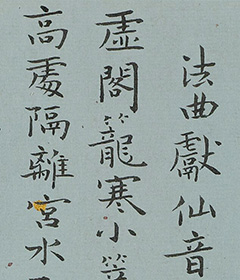 法曲獻仙音
虛閣籠寒小
高處隔離宮水